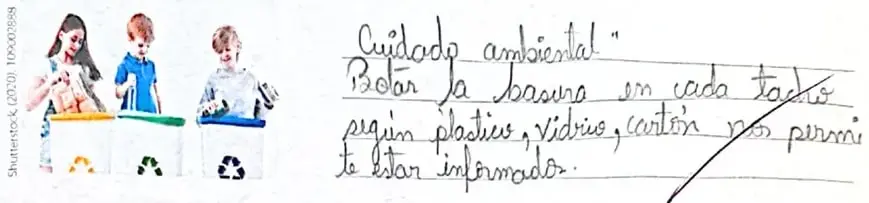 Shutterstock, (2020). 109002888
Cuidado ambiental"
Botar la basura en cada tacho
según plastico, vidrio, cartón nos permi
te estar informados.